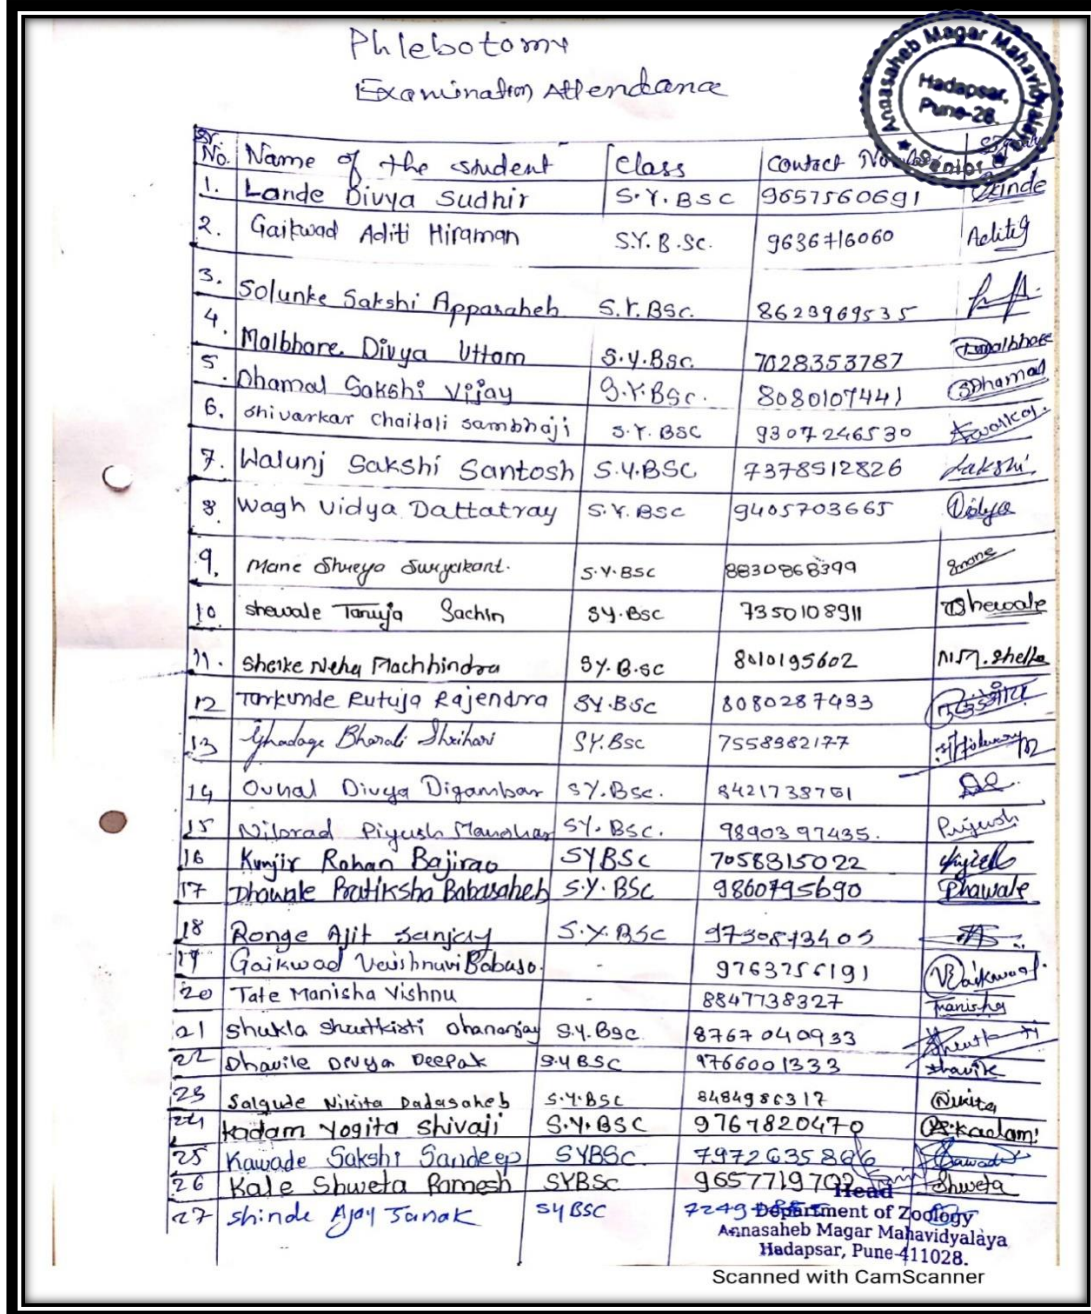 Phlebotomy
Examination Attendance
Annasaheb Magar Mahavidyalaya
Hadapsar,
Pune-28.
Senior
Sr. No. Name of the student Class Contact No
1. Lande Divya Sudhir S.Y.BSC 9657560691
2. Gaikwad Aditi Hiraman S.Y.B.Sc. 9636716060 Aditig
3. Solunke Sakshi Apparaheb S.Y.BSC. 8623969535
4. Malbhare Divya Uttam S.Y.BSC. 7028353787 Dmalbhare
5. Dhamal Sakshi Vijay S.Y.BSC. 8080107441 SDhamal
6. Shivarkar Chaitali Sambhaji S.Y. BSC 9307246530
7. Walunj Sakshi Santosh S.Y.BSC 7378512826 Sakshi
8 Wagh Vidya Dattatray S.Y. BSC 9405703665 Vidya
9. Mane Shreya Suryakant. S.Y.BSC 8830868399 Smane
10 Shewale Tanuja Sachin SY.BSC 7350108911 TShewale
11. Shelke Neha Machhindra SY.B.SC 8010195602 N.M.Shelke
12 Tarkunde Rutuja Rajendra SY.BSC 8080287433
13 Ghadage Bharati Shrihari SY.Bsc 7558982177
14 Ovhal Divya Digambar SY.BSc. 8421738751
15 Nilprad Piyush Manohar SY.BSC. 9890397435. Piyush
16 Kunjir Rohan Bajirao SYBSC 7058315022
17 Dhawale Pratiksha Babasaheb S.Y. BSC 9860795690 Dhawale
18 Ronge Ajit Sanjay S.Y.BSC
19 Gaikwad Vaishnavi Babaso. - 9763256191 VGaikwad.
20 Tate Manisha Vishnu - 8847738327 Manisha
21 Shukla Shrutkirti Dhananjay S.Y.BSC 8767040933
22 Dhavile Divya Deepak S.YBSC 9766001333
23 Salgude Nikita Dadasaheb S.Y.BSC 8484986317 Nikita
24 Kadam Yogita Shivaji S.Y.BSC 9767820470
25 Kawade Sakshi Sandeep SYBSC 7972635866
26 Kale Shweta Ramesh SYBSC 9657719702 Shweta
27 Shinde Ajay Janak SYBSC 7249
Head
Department of Zoology
Annasaheb Magar Mahavidyalaya
Hadapsar, Pune-411028.
Scanned with CamScanner